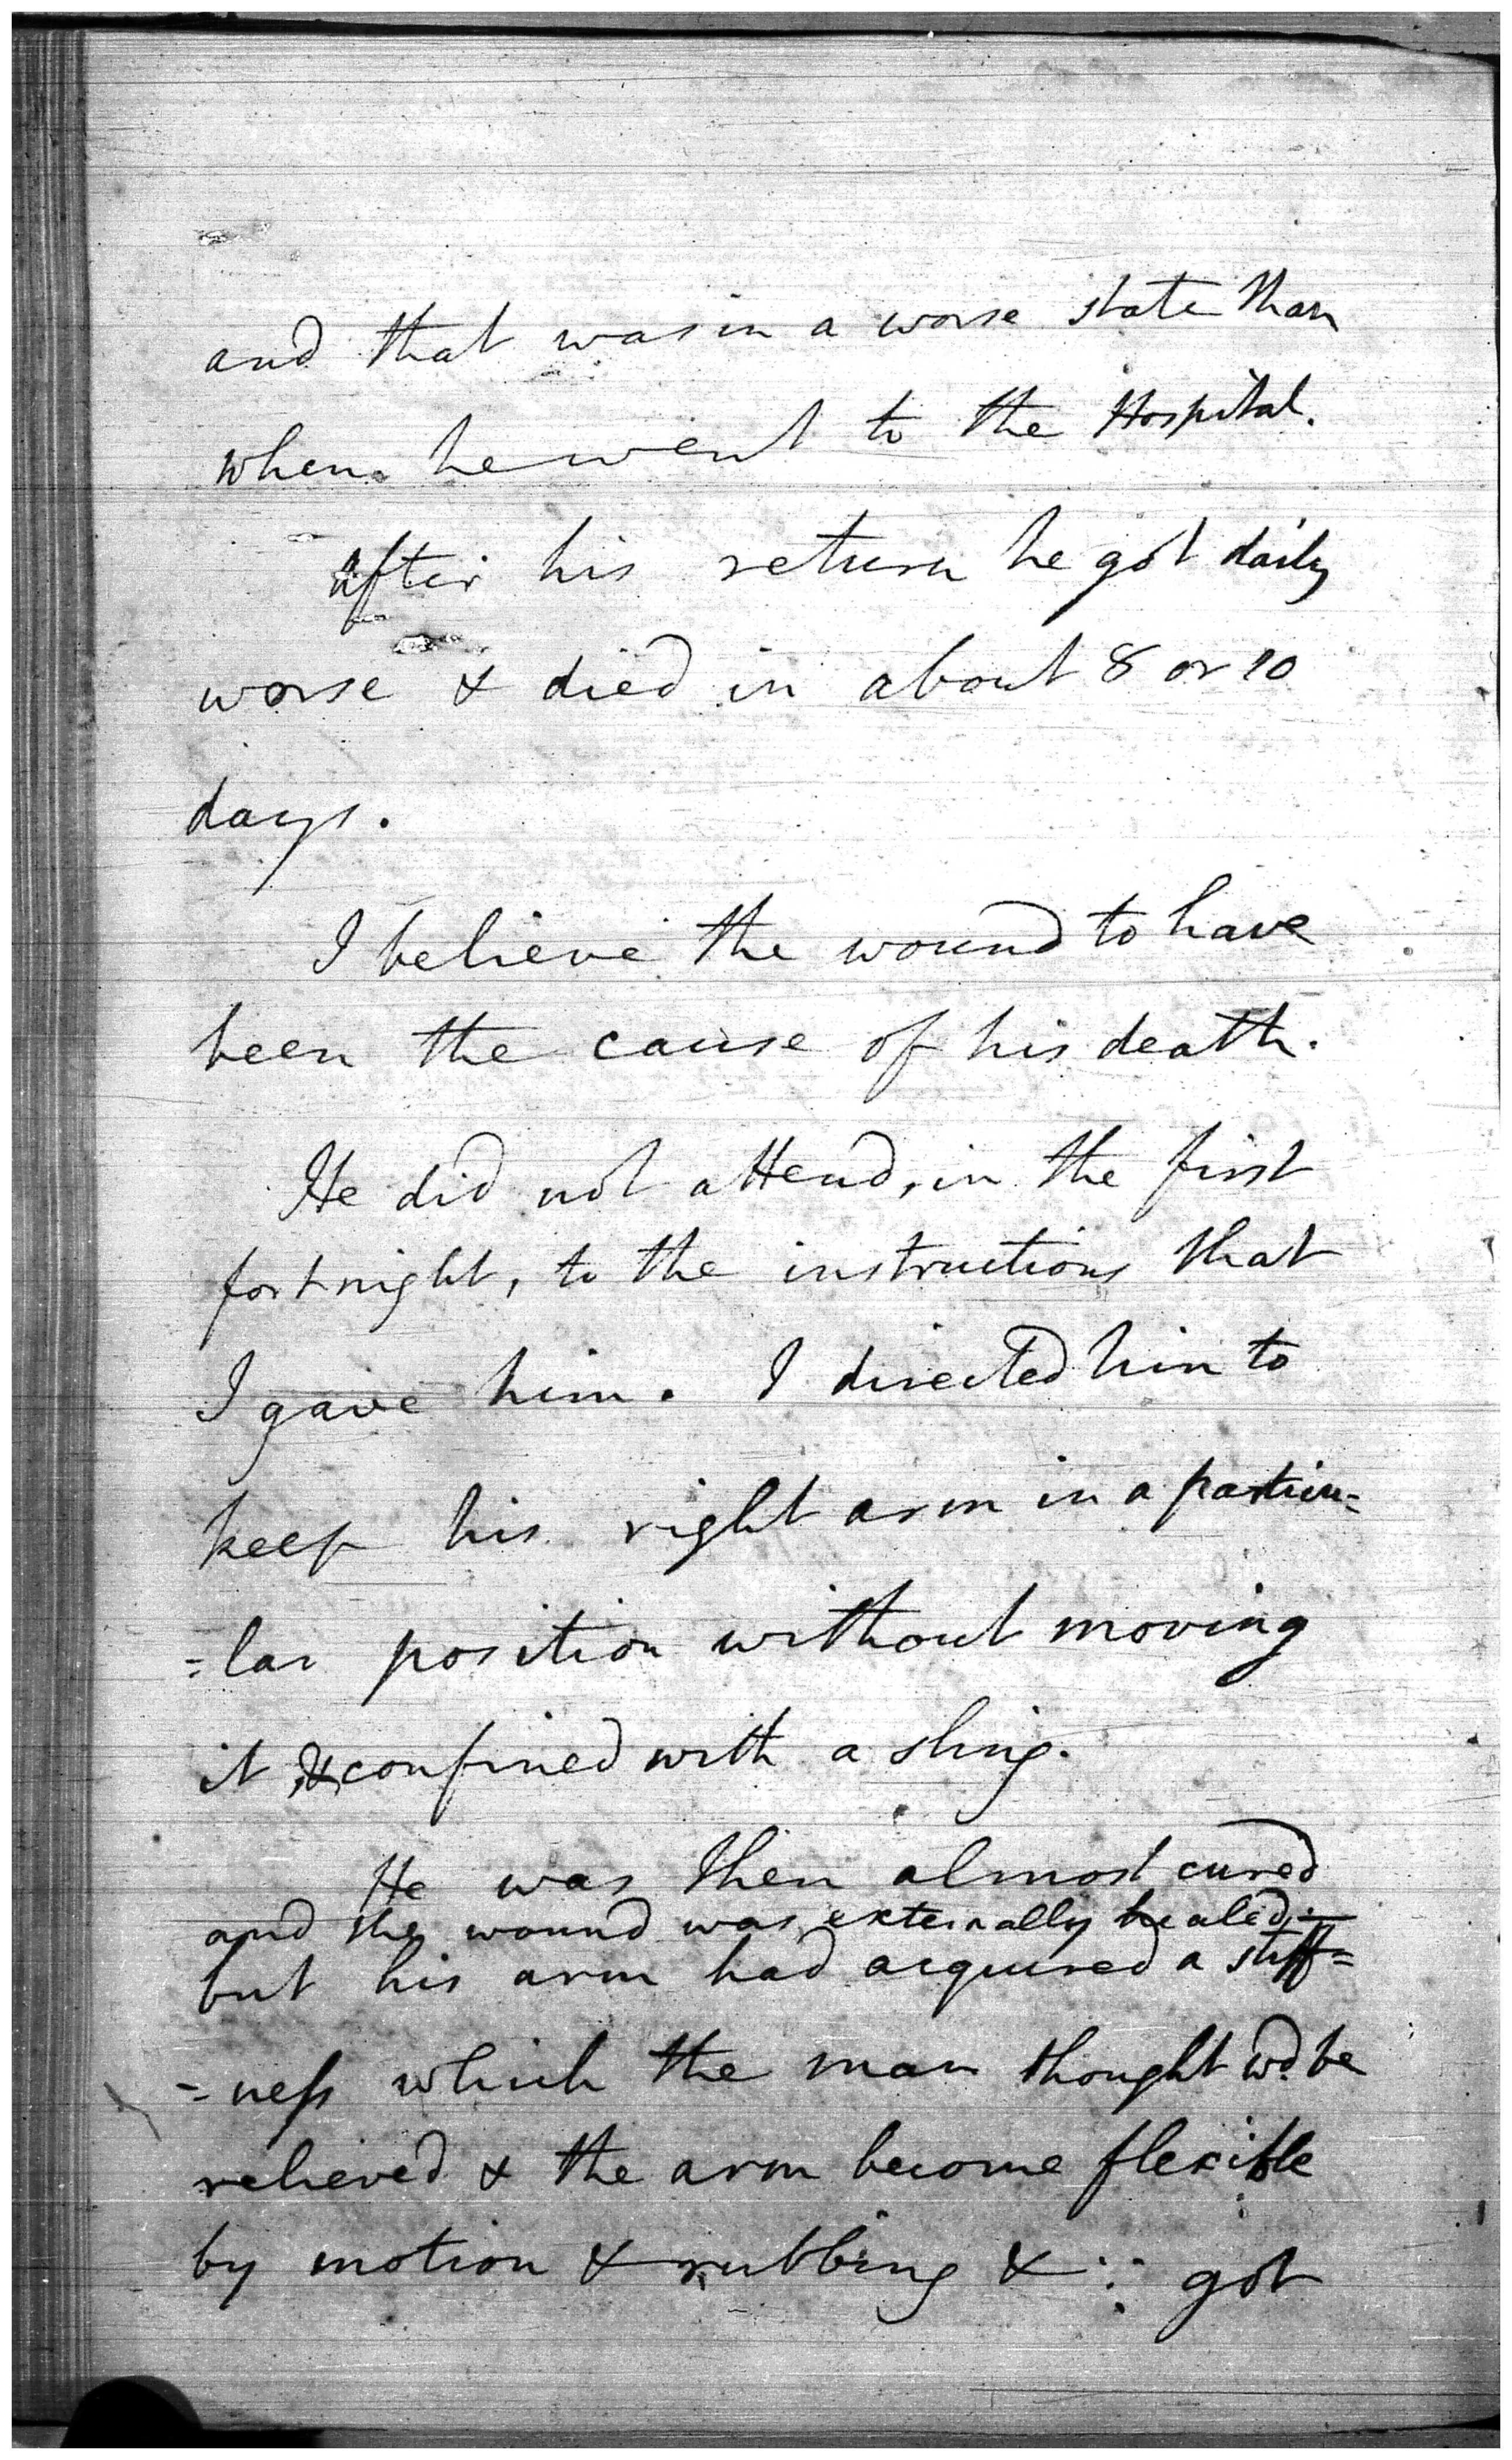 and that was in a worse state than
when he went to the Hospital.
after his return he got daily
worse & died in about 8 or 10
days.
I believe the wound to have
been the cause of his death.
He did not attend, in the first
fortnight, to the instructions that
I gave him. I directed him to
keep his right arm in a particu=
=lar position without moving
it & confined with a sling.
He was then almost cured
and the wound was externally healed;—
but his arm had acquired a stiff=
=ness which the man thought wd. be
relieved & the arm become flexible
by motion & rubbing & ∵ got